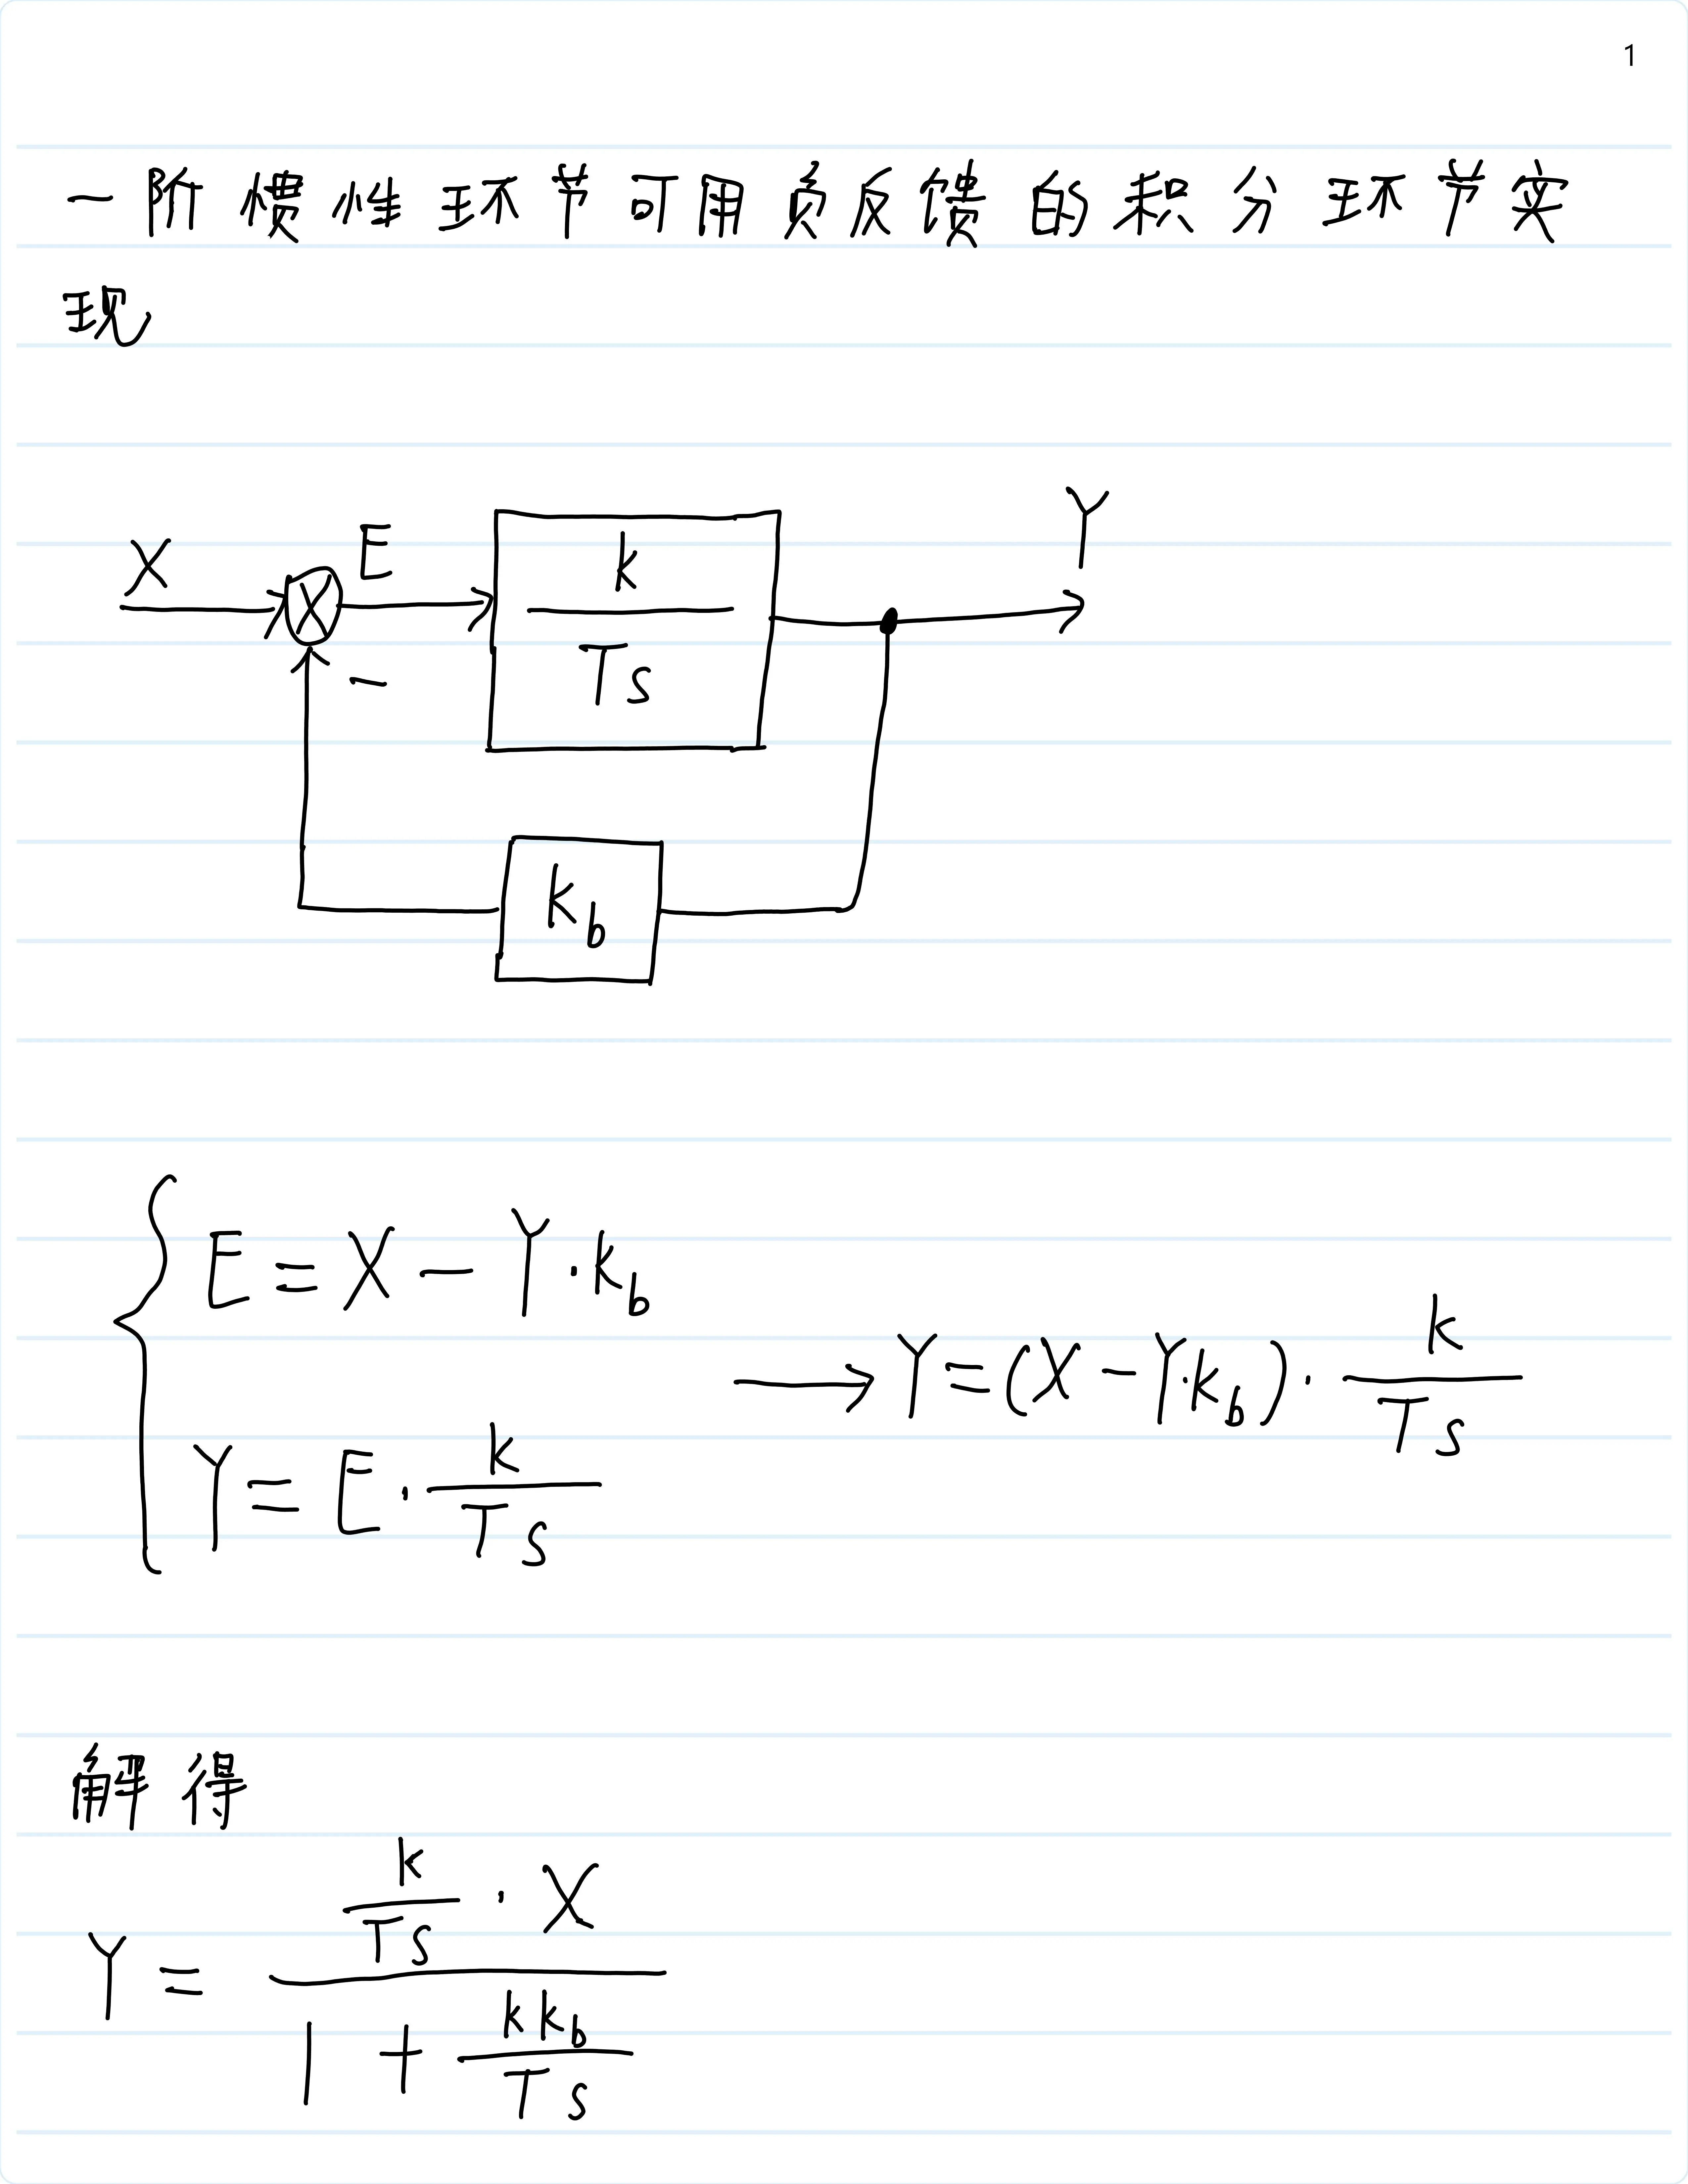 1
一阶惯性环节可用负反馈的积分环节实
现
X E k/(Ts) Y
-
k_b
E = X - Y·k_b
→ Y = (X - Y·k_b)·k/(Ts)
Y = E·k/(Ts)
解得
Y = (k/(Ts)·X)/(1 + kk_b/(Ts))